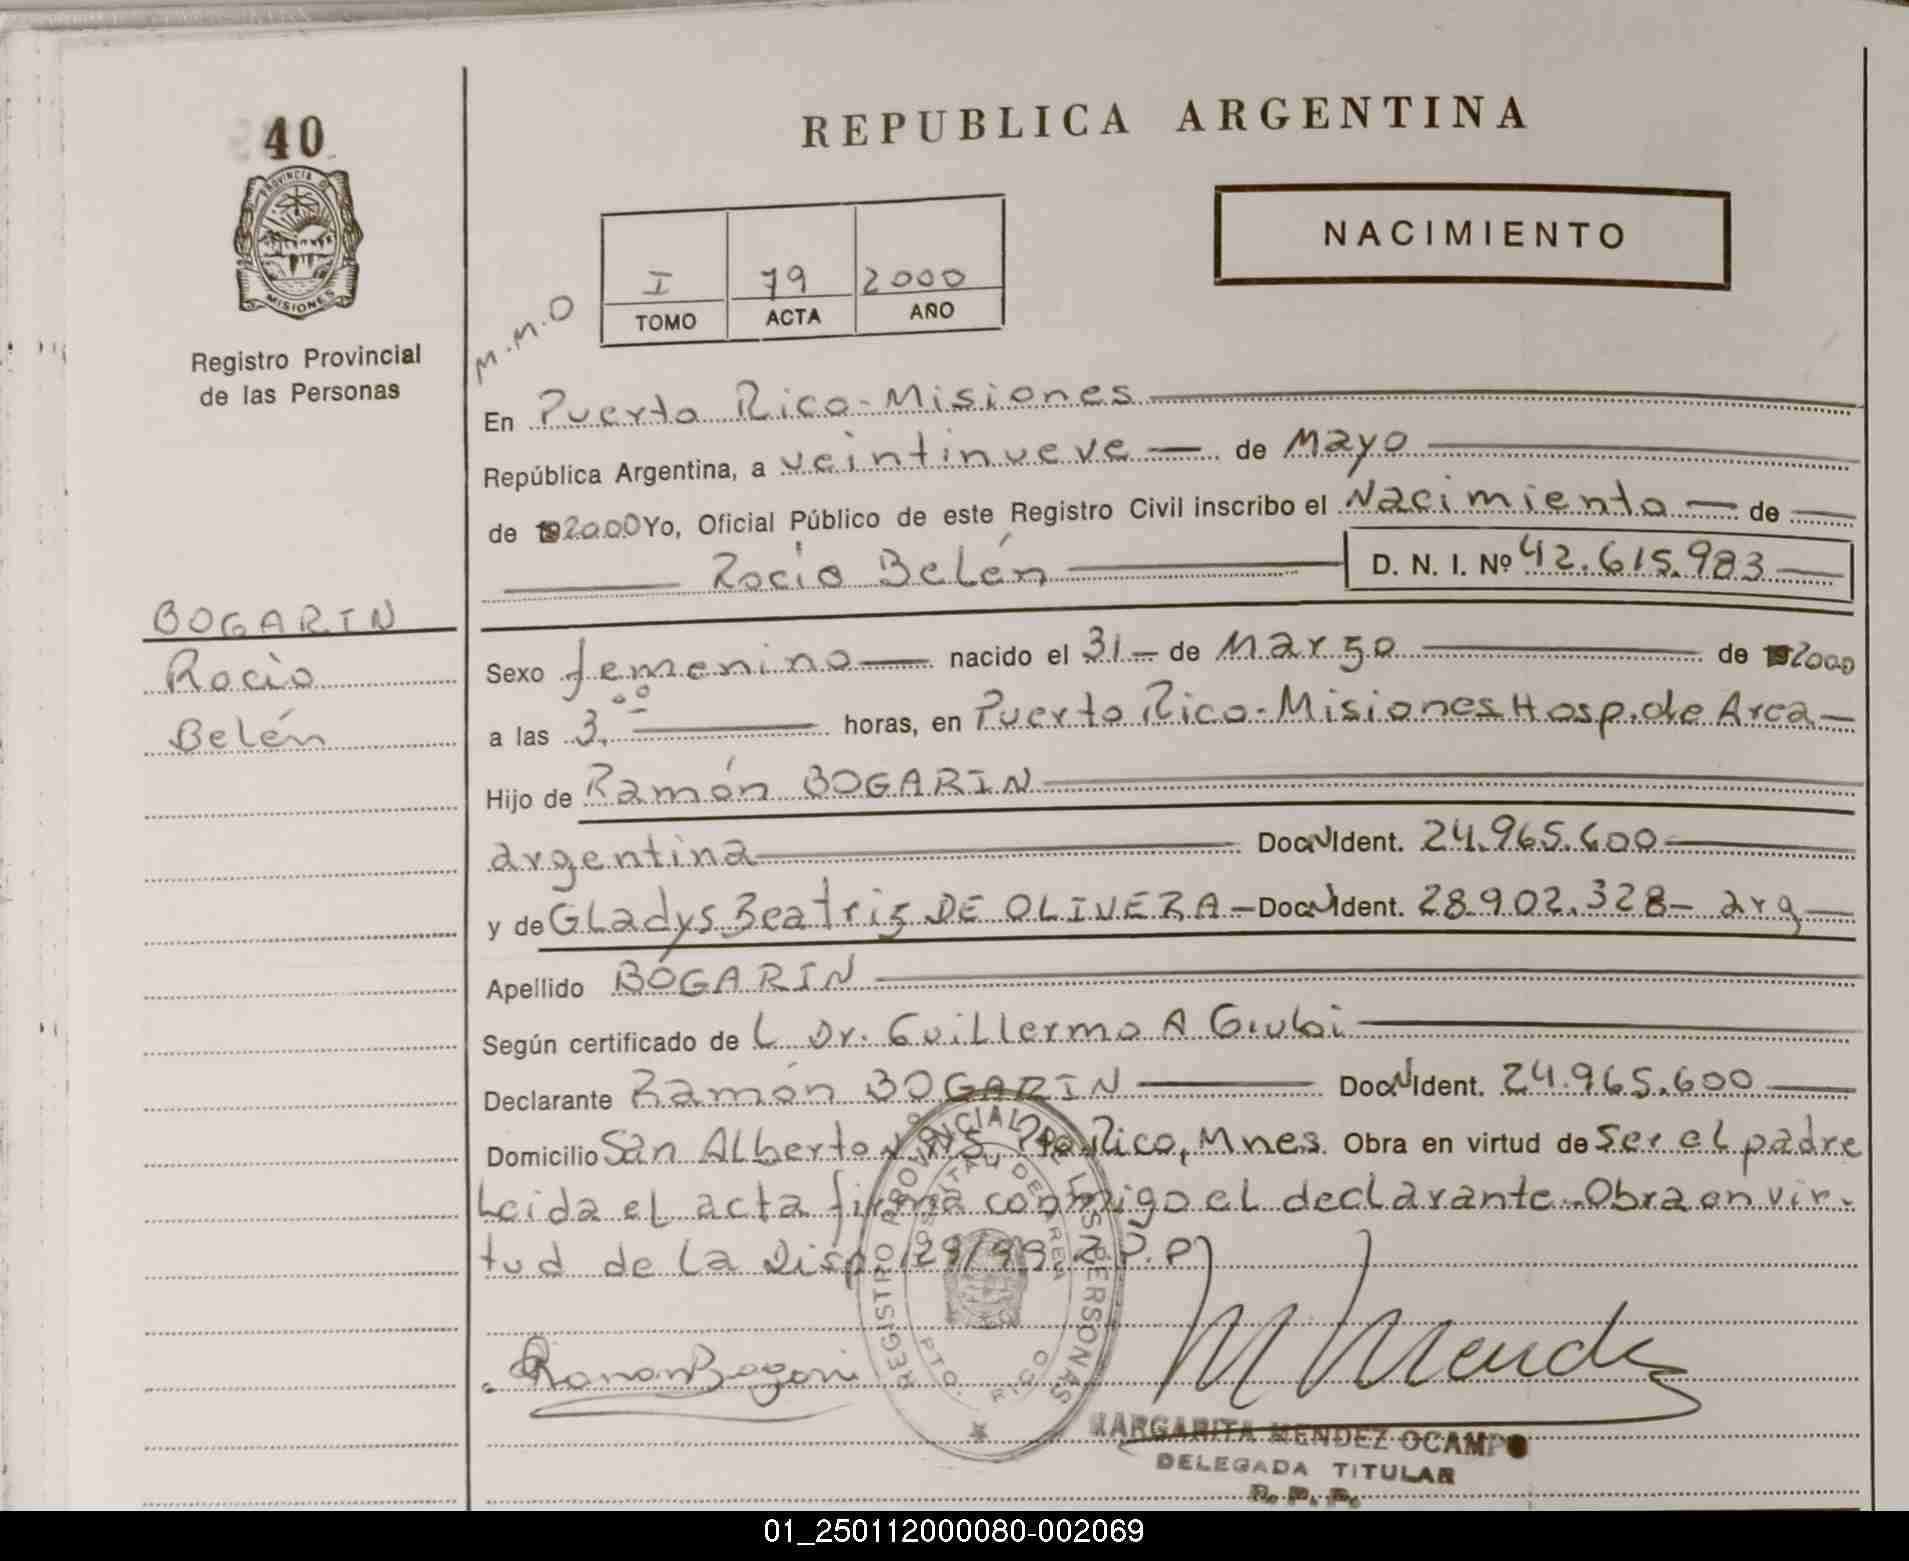 40
PROVINCIA D
MISIONES
Registro Provincial
de las Personas
REPUBLICA ARGENTINA
NACIMIENTO
I 79 2000
TOMO ACTA AÑO
M.M.O
En Puerto Rico-Misiones
República Argentina, a veintinueve de Mayo
de 2000 Yo, Oficial Público de este Registro Civil inscribo el Nacimiento de
Rocío Belén D. N. I. Nº 42.615.983
BOGARIN
Rocío
Belén
Sexo femenino nacido el 31 de Marzo de 2000
a las 3,00 horas, en Puerto Rico-Misiones Hosp. de Area
Hijo de Ramón BOGARIN
argentina Doc N Ident. 24.965.600
y de Gladys Beatriz DE OLIVERA Doc N Ident. 28.902.328 - arg
Apellido BOGARIN
Según certificado de L Dr. Guillermo A
Declarante Ramón BOGARIN Doc N Ident. 24.965.600
Domicilio San Alberto Pto Rico, Mnes. Obra en virtud de ser el padre
Leida el acta firma conmigo el declarante. Obra en vir-
tud de la Disp 129/99 R.P.P
Ramon Bogarin
M Mendez
REGISTRO PROVINCIAL DE LAS PERSONAS
HOSPITAL DE AREA
PTO. RICO
MARGARITA MENDEZ OCAMPO
DELEGADA TITULAR
R. P. P.
01_250112000080-002069